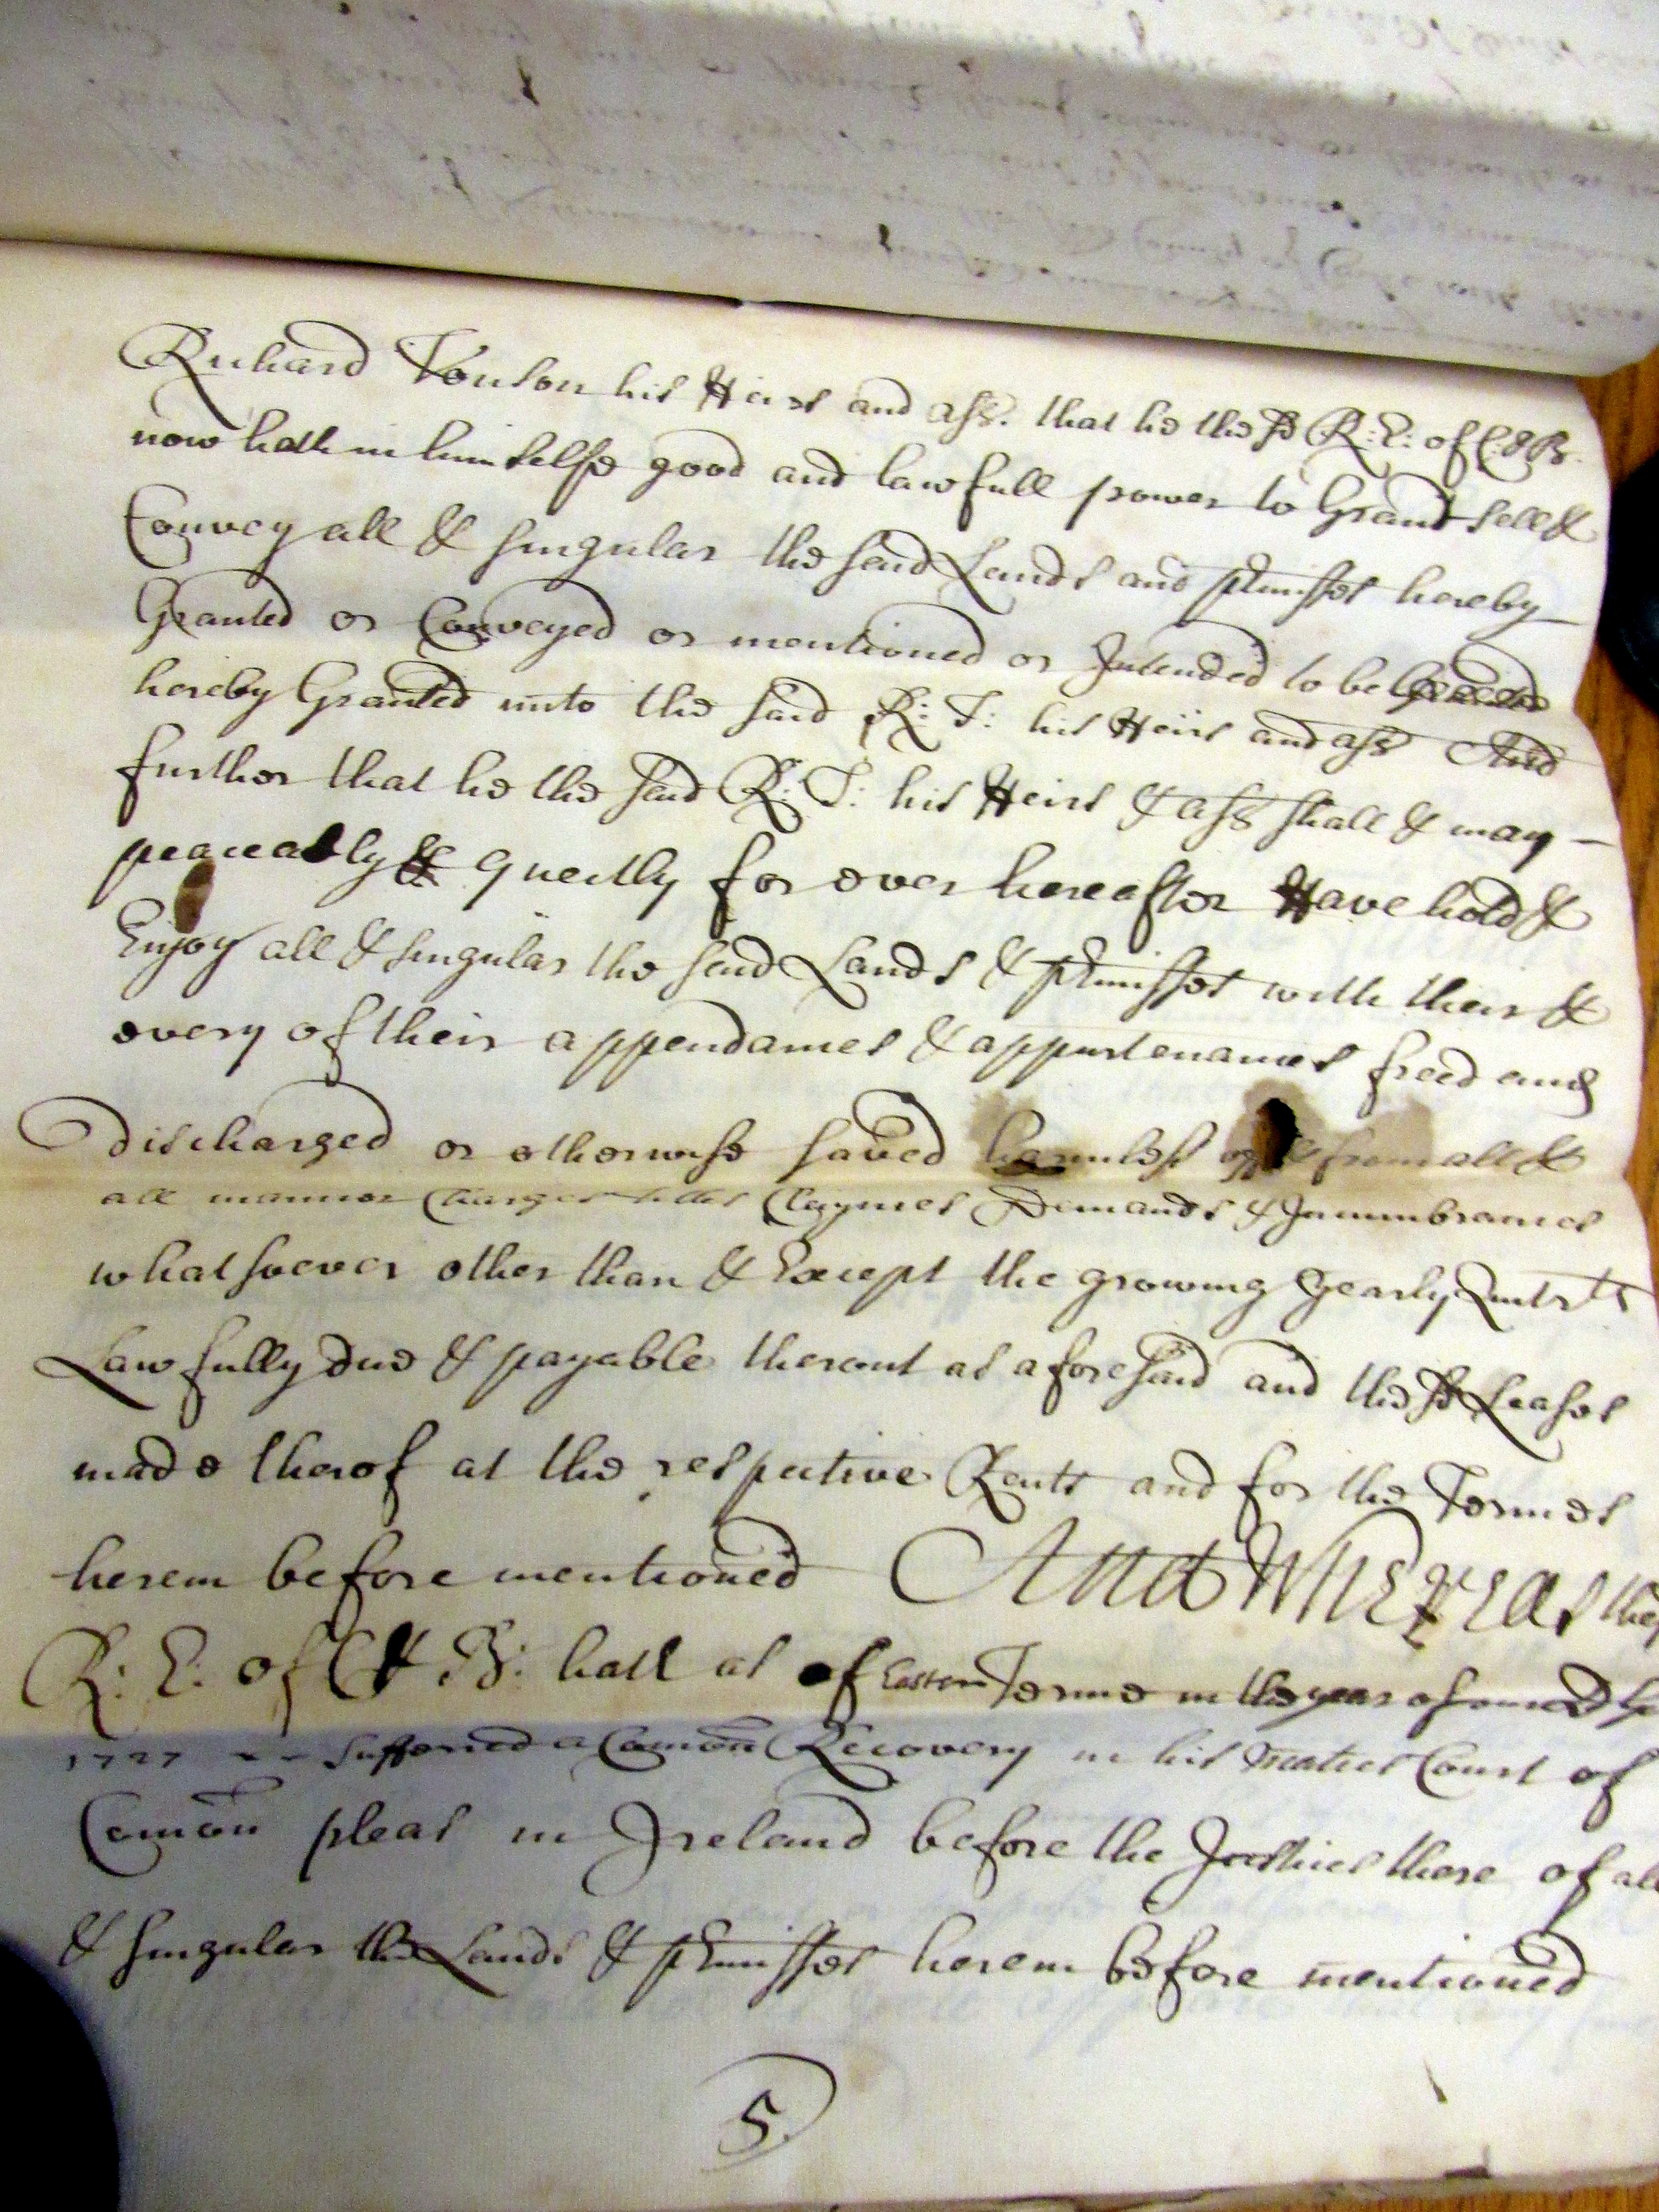 Richard Tonson his Heirs and ass. that he the sd R: E: of C: & B.
now hath in himselfe good and lawfull power to Grant sell &
Convey all & singular the said Lands and pmisses hereby
Granted or Conveyed or mentioned or Intended to be
hereby Granted unto the said R: T: his Heirs and ass And
further that he the said R: T: his Heirs & ass shall & may
peaceably & quietly for ever hereafter Have hold &
Enjoy all & singular the said Lands & pmisses with their &
every of their appendances & appurtenances freed and
Discharged or otherwise saved harmless of & from all &
all manner Charges titles Claymes Demands & Incumbrances
whatsoever other than & Except the growing yearly Quitrts
Lawfully due & payable thereout as aforesaid and the sd Leases
made therof at the respective Rents and for the Termes
herein before mentioned And Whereas the
R: E: of C & B: hath as of Easter Terme in the year of
1727 suffered a Comon Recovery in his Maties Court of
Comon pleas in Ireland before the Justices there of all
& singular the Lands & pmisses herein before mentioned
5.